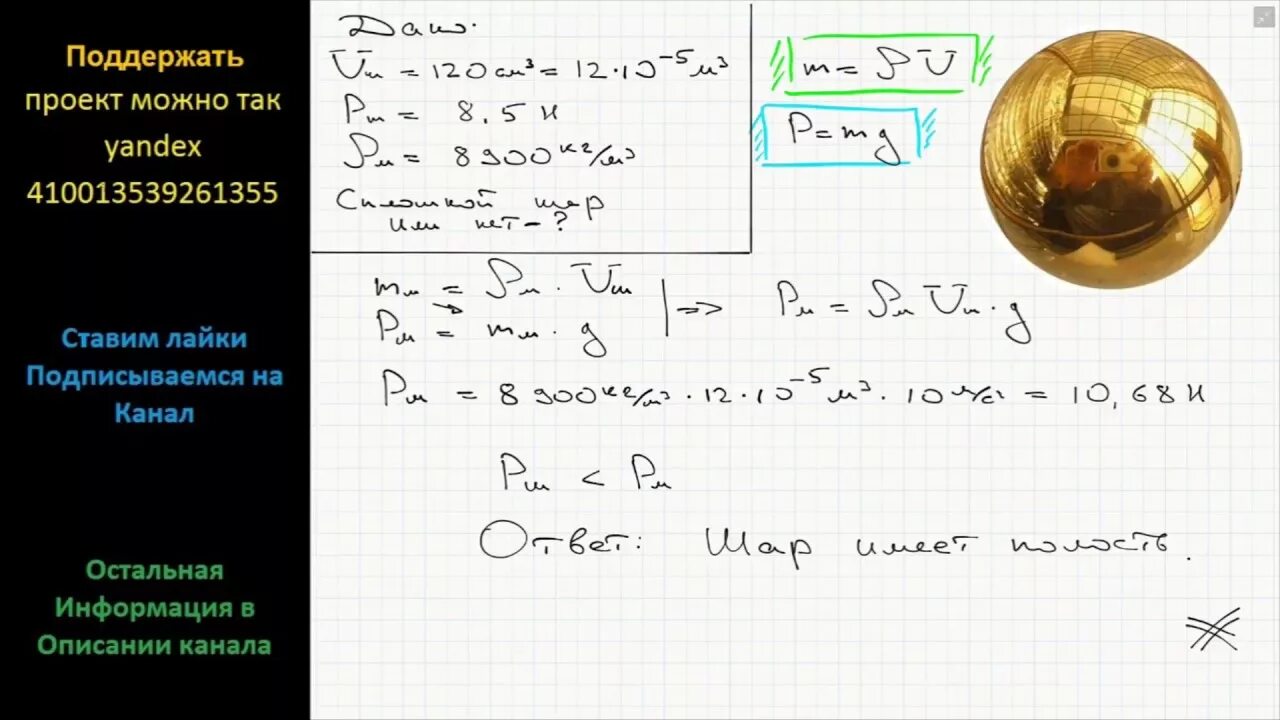 Поддержать
проект можно так
yandex
410013539261355
Ставим лайки
Подписываемся на
Канал
Остальная
Информация в
Описании канала
Дано:
Vш = 120 см³ = 12·10⁻⁵ м³
Pш = 8,5 Н
ρм = 8900 кг/м³
Сплошной шар
или нет - ?
m = ρV
P = mg
mм = ρм · Vш
Pм = mм · g
=> Pм = ρм Vш · g
Pм = 8900 кг/м³ · 12·10⁻⁵ м³ · 10 м/с² = 10,68 Н
Pш < Pм
Ответ: Шар имеет полость.